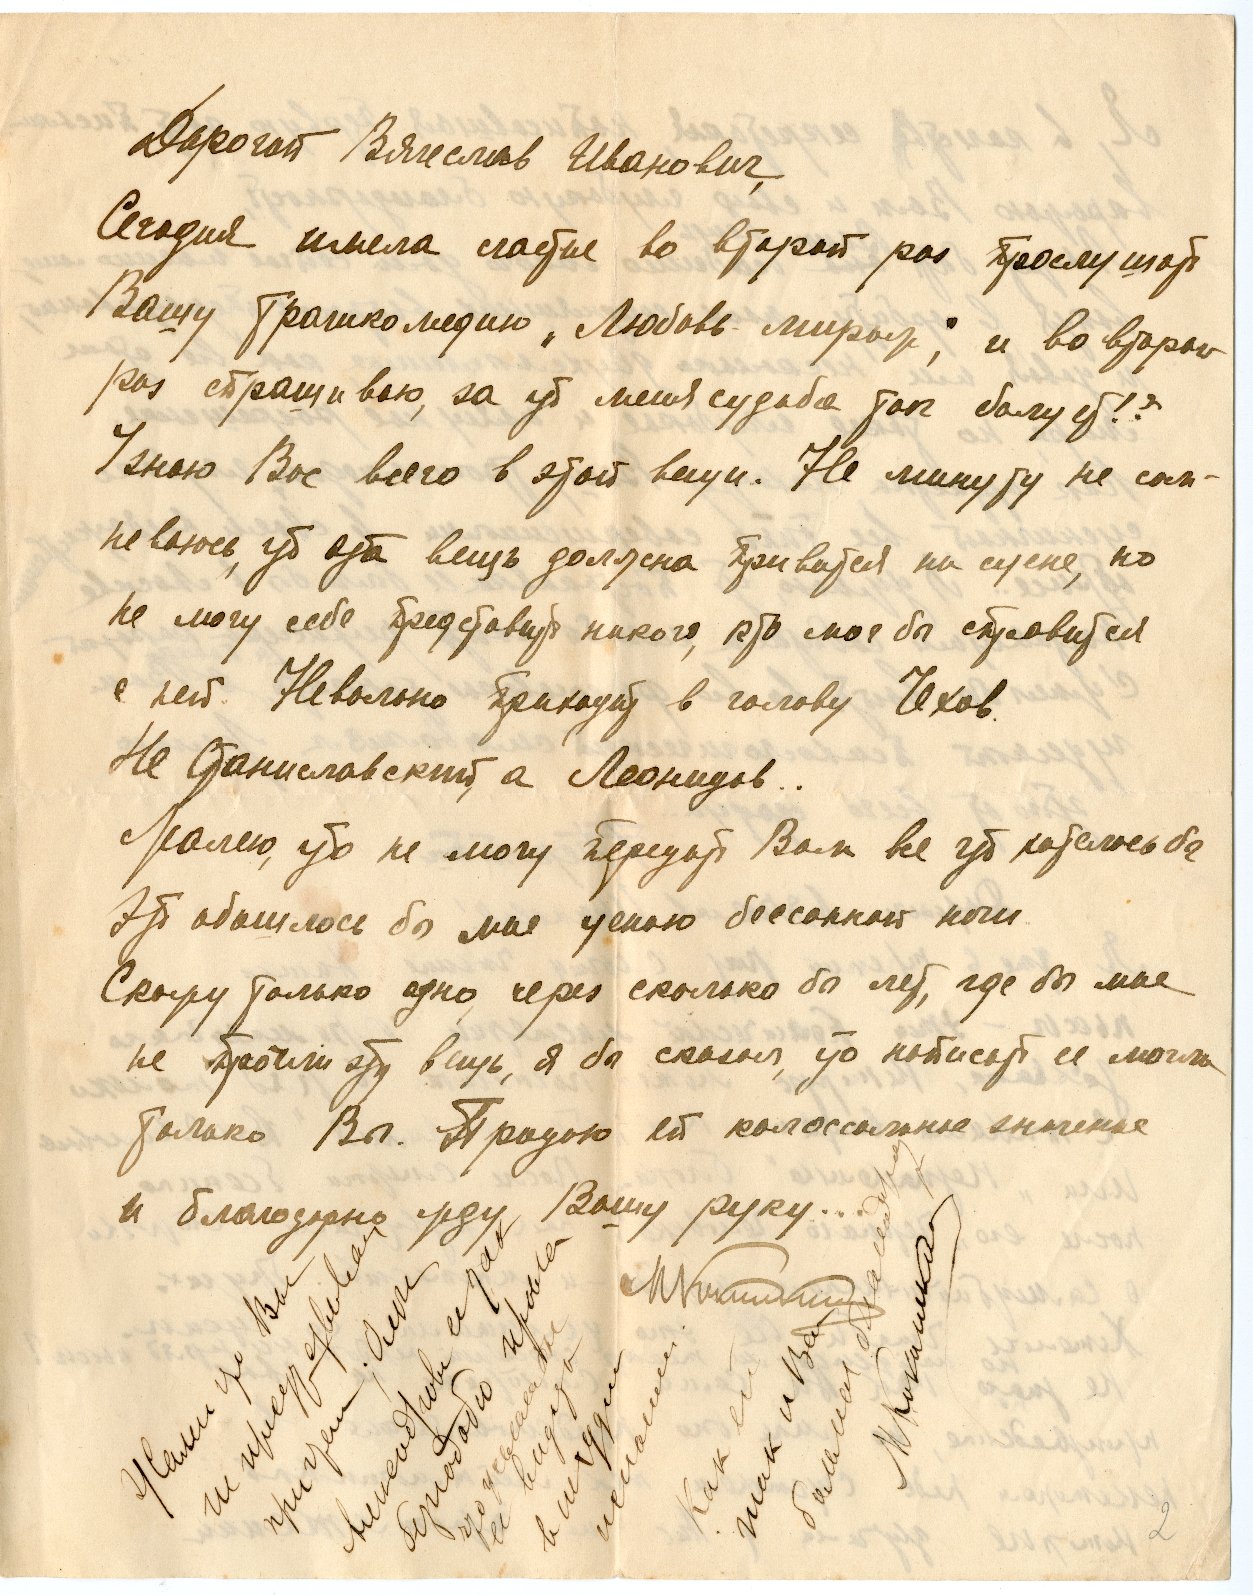 Дорогой Вячеслав Иванович,
Сегодня имела счастье во второй раз прослушать
Вашу трагикомедию „Любовь - мираж", и во второй
раз спрашиваю, за что меня судьба так балует!?
Узнаю Вас всего в этой вещи. Не минуту не сом-
неваюсь, что эта вещь должна привиться на сцене, но
не могу себе представить никого, кто мог бы справиться
с ней. Невольно приходит в голову Чехов.
Не Станиславский, а Леонидов..
Жалею, что не могу передать Вам все что хотелось бы
Это обошлось бы мне ценою бессонной ночи
Скажу только одно, через сколько бы лет, где бы мне
не прочли эту вещь, я бы сказала, что написать ее могли
только Вы. Придаю ей колоссальное значение
и благодарно жду Вашу руку...
Жалею что Вы
не
при чтении; Ольги
Александровны и как
бы
что
ее видеть
в
исполнении.
Как ей
так и Вам
большая благодарность